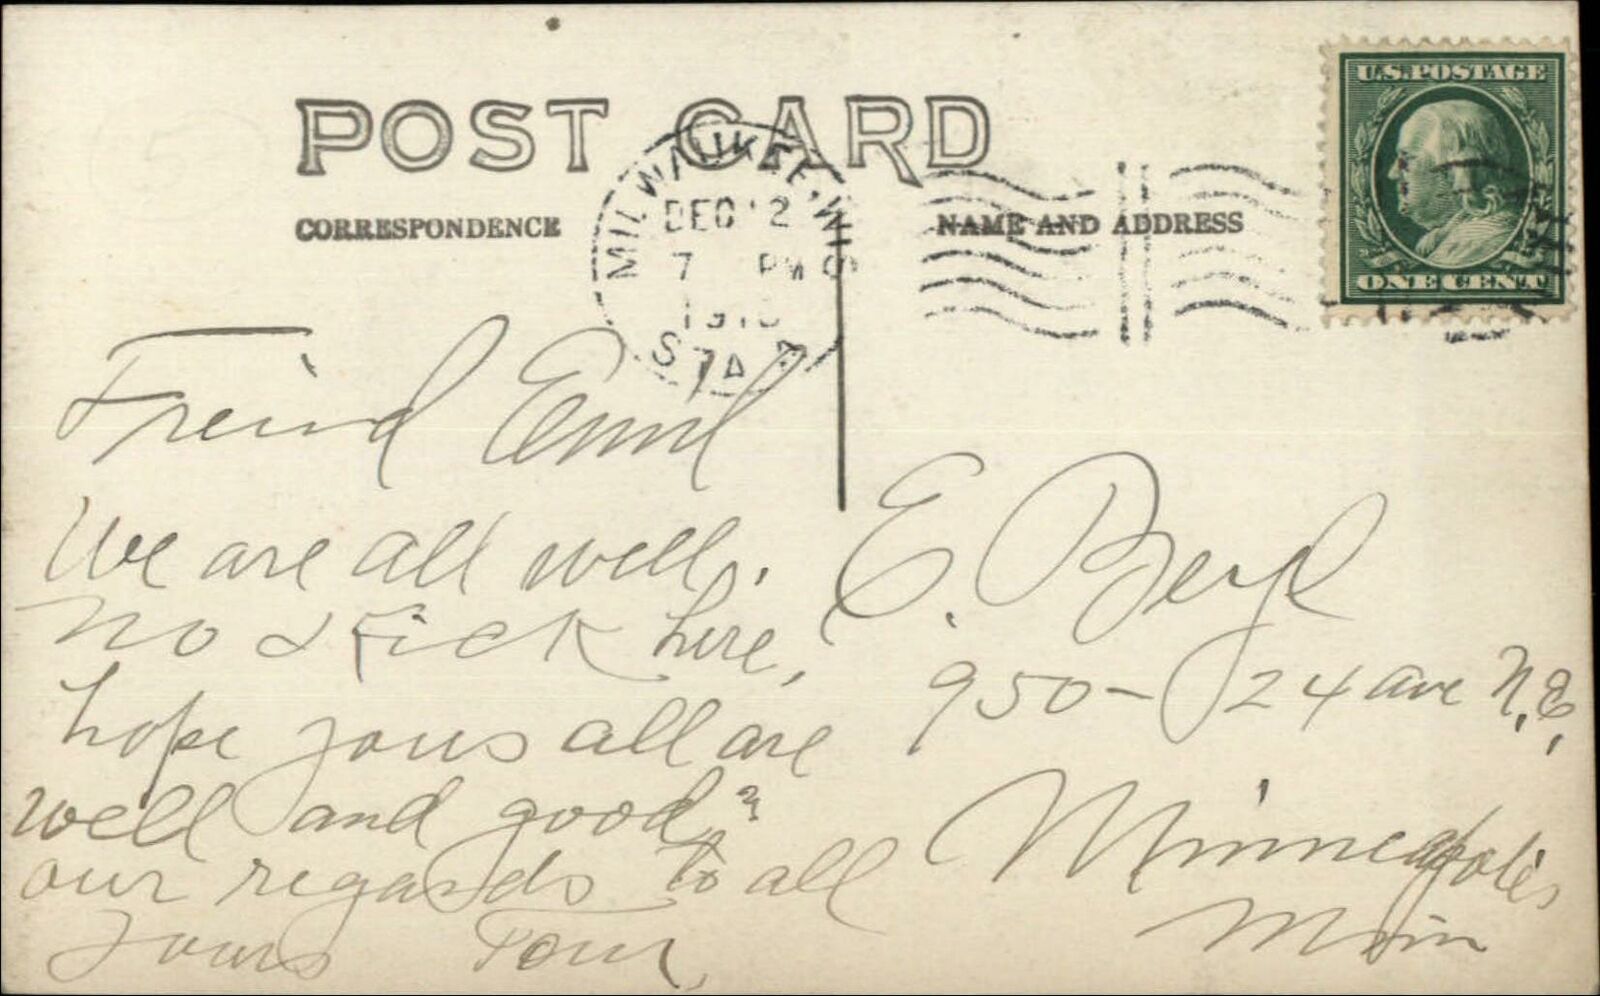 POST CARD
CORRESPONDENCE
NAME AND ADDRESS
U.S. POSTAGE
ONE CENT
MILWAUKEE, WIS
DEC 12
7 PM
191
STA
Freind Emil
We are all well.
no sick here,
hope yous all are
well and good?
our regards to all
Yours Tom
E.
950 - 24 ave N.E.
Minneapolis
Minn